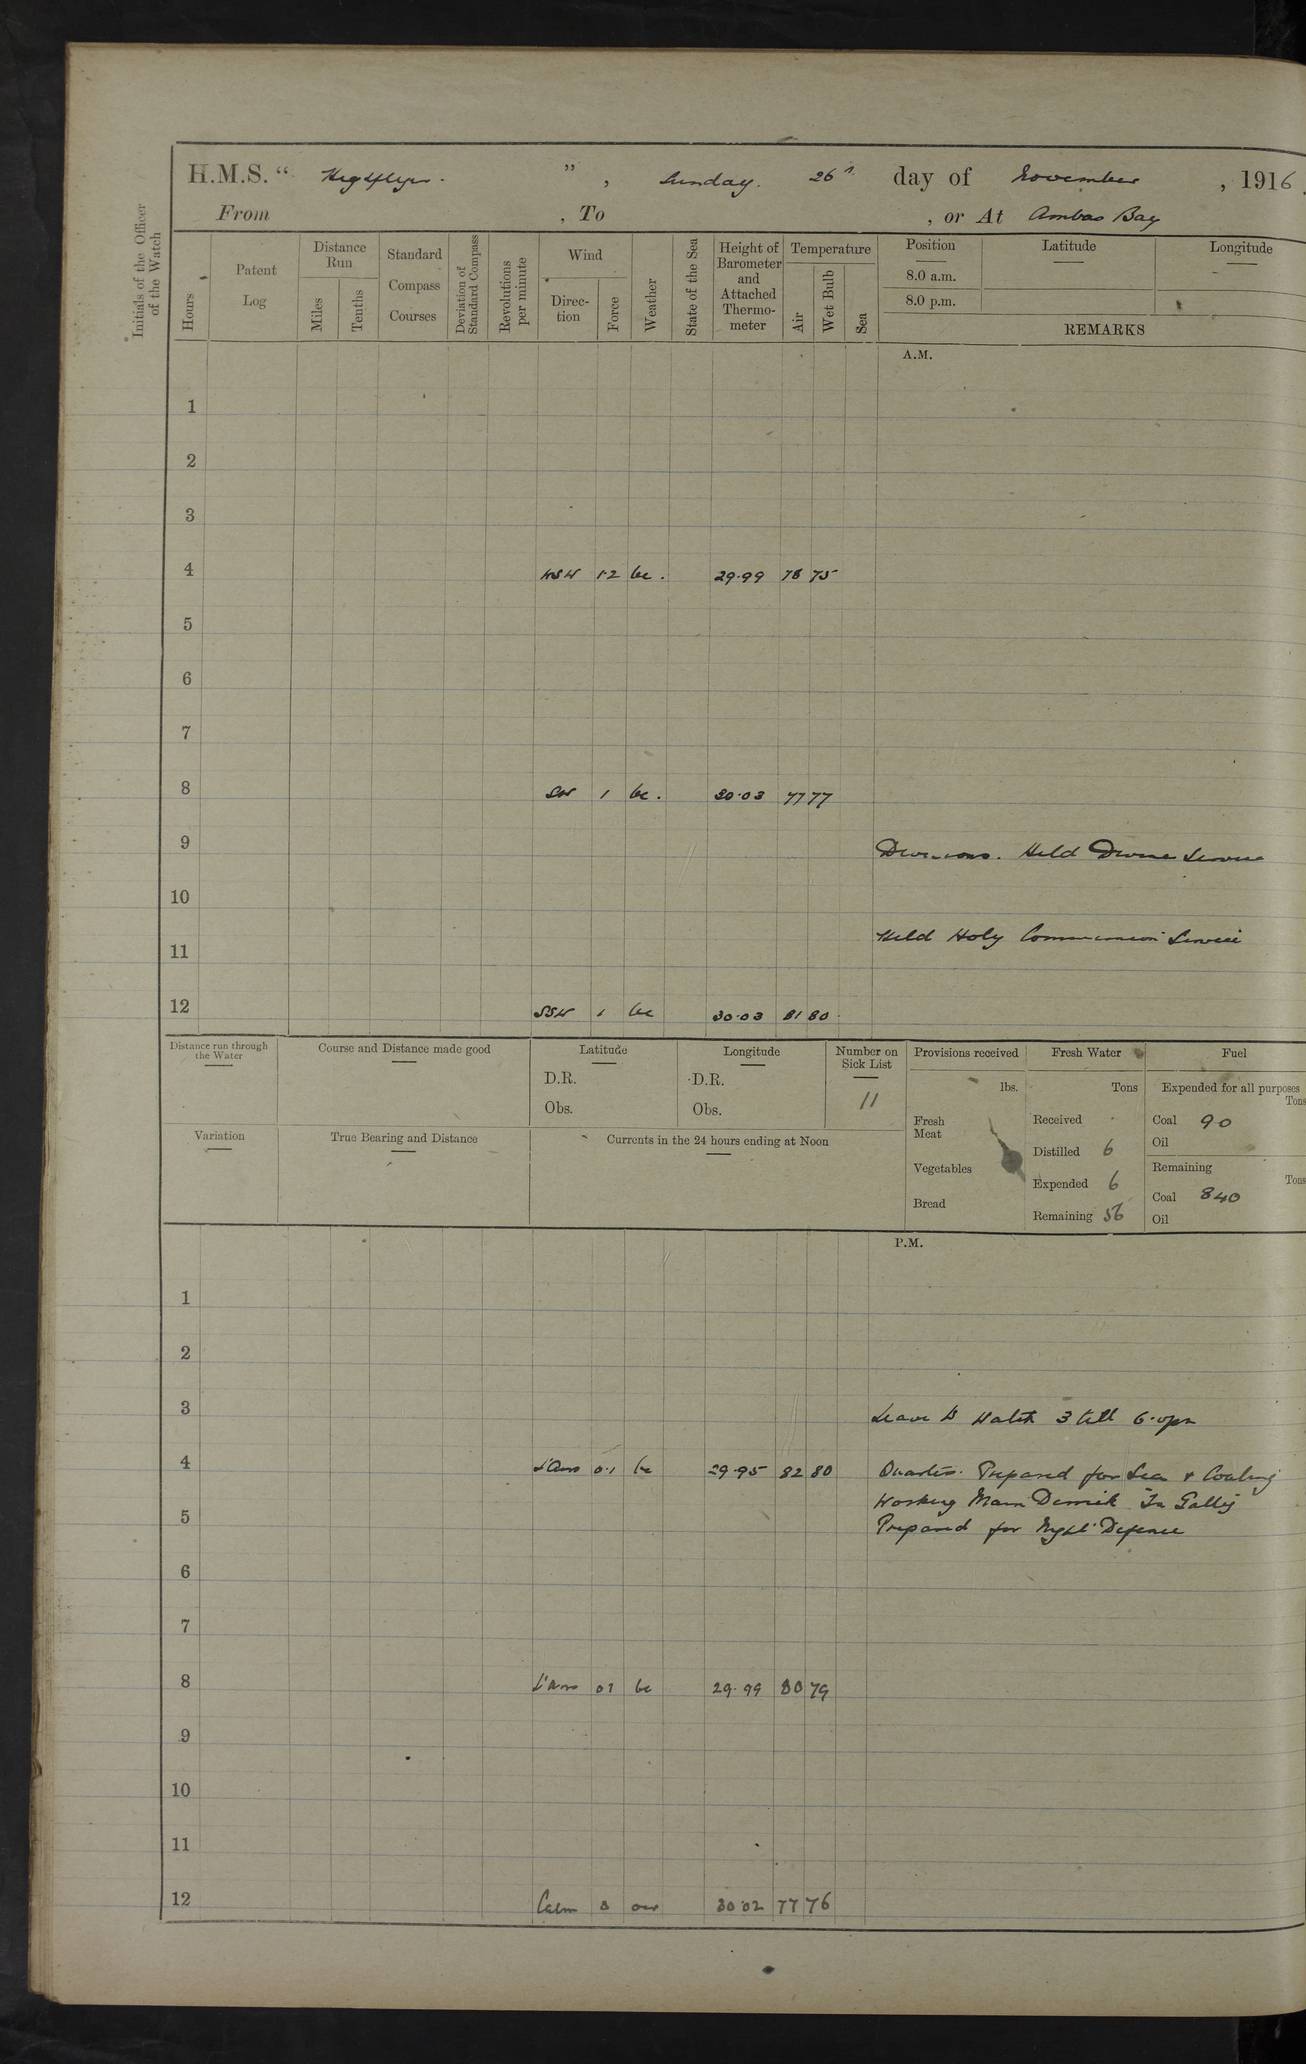 H.M.S. “ Highflyer. ”, Sunday. 26th day of November, 1916.
From , To , or At Ambas Bay
Initials of the Officer of the Watch
Hours
Patent Log
Distance Run
Miles
Tenths
Standard Compass Courses
Deviation of Standard Compass
Revolutions per minute
Wind
Direc-tion
Force
Weather
State of the Sea
Height of Barometer and Attached Thermo-meter
Temperature
Air
Wet Bulb
Sea
Position Latitude Longitude
8.0 a.m.
8.0 p.m.
REMARKS
A.M.
1
2
3
4 WSW 1·2 bc. 29·99 78 75
5
6
7
8 SW 1 bc. 30·03 77 77
9 Divisions. Held Divine Service
10
11 Held Holy Communion Service
12 SSW 1 bc 30·03 81 80
Distance run through the Water
Course and Distance made good
Latitude
D.R.
Obs.
Longitude
D.R.
Obs.
Number on Sick List
11
Variation
True Bearing and Distance
Currents in the 24 hours ending at Noon
Provisions received
lbs.
Fresh Meat
Vegetables
Bread
Fresh Water
Tons
Received
Distilled 6
Expended 6
Remaining 56
Fuel
Expended for all purposes
Tons
Coal 90
Oil
Remaining
Tons
Coal 840
Oil
P.M.
1
2
3 Leave to Watch 3 till 6·0pm
4 L'Airs 0·1 bc 29·95 82 80 Quarters. Prepared for Sea & Coaling
Working Main Derrick
5 Prepared for Night Defence
6
7
8 L'Airs 0 1 bc 29·99 80 79
9
10
11
12 Calm 0 30·02 77 76